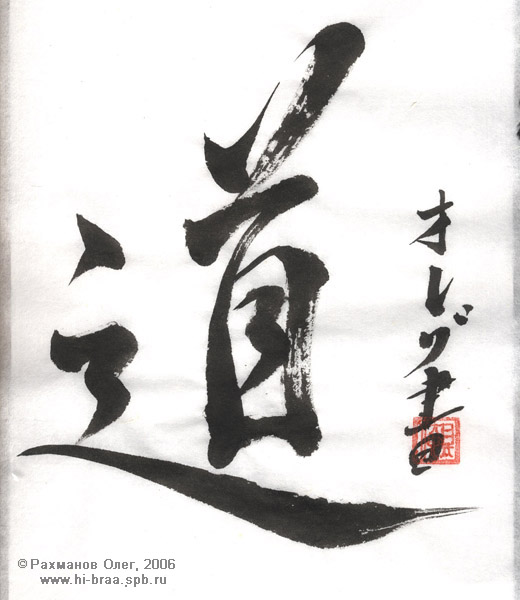 道
オレグ書
©Рахманов Олег, 2006
www.hi-braa.spb.ru